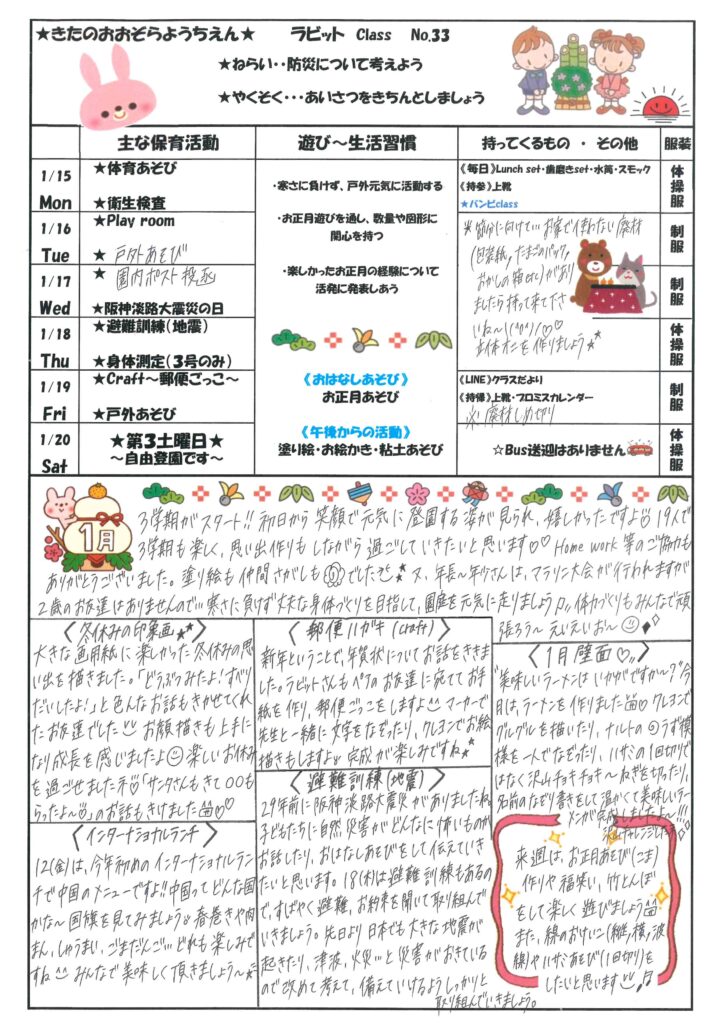 ★きたのおおぞらようちえん★ ラビット Class No.33
★ねらい‥防災について考えよう
★やくそく・・・あいさつをきちんとしましょう
主な保育活動 遊び～生活習慣 持ってくるもの ・ その他 服装
1/15 Mon
★体育あそび
★衛生検査
1/16 Tue
★Play room
★ 戸外あそび
1/17 Wed
★ 園内ポスト投函
★阪神淡路大震災の日
1/18 Thu
★避難訓練(地震)
★身体測定(3号のみ)
1/19 Fri
★Craft～郵便ごっこ～
★戸外あそび
1/20 Sat
★第3土曜日★
～自由登園です～
・寒さに負けず、戸外元気に活動する
・お正月遊びを通し、数量や図形に
関心を持つ
・楽しかったお正月の経験について
活発に発表しあう
《おはなしあそび》
お正月あそび
《午後からの活動》
塗り絵・お絵かき・粘土あそび
《毎日》Lunch set・歯磨きset・水筒・スモック
《持参》上靴
★バンビclass
※節分に向けて…お家で使わない廃材
(包装紙,たまごのパック,
おかしの箱etc)があり
ましたら持って来て下さ
いね～!(^o^)/♡♡
お体オニを作りましょう★
《LINE》クラスだより
《持帰》上靴・プロミスカレンダー
※廃材しめ切り
☆Bus送迎はありません
体操服
制服
制服
体操服
制服
体操服
1月
3学期がスタート!! 初日から笑顔で元気に登園する姿が見られ、嬉しかったですよ 19人で
3学期も楽しく、思い出作りもしながら過ごしていきたいと思います♡♡ Home work 等のご協力も
ありがとうございました。塗り絵も仲間さがしも でした★ 又、年長～年少さんは、マラソン大会が行われますが
2歳のお友達はありませんので…寒さに負けず丈夫な身体づくりを目指して、園庭を元気に走りましょう 体力づくりもみんなで頑
張ろう～ えいえいお～
〈冬休みの印象画★★〉
大きな画用紙に楽しかった冬休みの思
い出を描きました。「どうぶつみたよ!ずぶり
だいしたよ!」と色んなお話もきかせてくれ
たお友達でした お顔描きも上手に
なり成長を感じましたよ 楽しいお休み
を過ごせました 「サンタさんもきて○○も
らったよ～」のお話もきけました ♡♡
〈郵便ハガキ(craft)〉
新年ということで、年賀状についてお話をききま
した。ラビットさんもペアのお友達に宛ててお手
紙を作り、郵便ごっこをしますよ マーカーで
先生と一緒に文字をなぞったり、クレヨンでお絵
描きもしますよ 完成が楽しみですね★
〈1月壁面♡〉
"美味しいラーメンはいかがですか～?"今
月は、ラーメンを作りました ♡クレヨンで
グルグルを描いたり、ナルトの うず模
様を一人でなぞったり、ハサミの1回切りで
はなく沢山チョキチョキ～ねぎを切ったり、
名前のなぞり書きをして温かくて美味しいラー
メンが完成しましたよ～!!!
沢山チャレンジした
〈インターナショナルランチ〉
12(金)は、今年初めのインターナショナルラン
チで中国のメニューですよ!!中国ってどんな国
かな～国旗を見てみましょう 春巻きや肉
まん、しゅうまい、ごまだんご…どれも楽しみで
すね^^ みんなで美味しく頂きましょう～★
〈避難訓練(地震)〉
29年前に阪神淡路大震災がありましたね
子どもたちに自然災害がどんなに怖いものか
お話したり、おはなしあそびをして伝えていき
たいと思います。18(木)は避難訓練もあるの
で、すばやく避難、お約束を聞いて取り組んで
いきましょう。先日より日本でも大きな地震が
起きたり、津波、火災…と災害がおきている
ので改めて考えて、備えていけるようしっかりと
取り組んでいきましょう。
来週は、お正月あそび(こま)
作りや福笑い、竹とんぼ
をして楽しく遊びましょう
また、線のおけいこ(縦,横,波
線)やハサミあそび(1回切り)を
したいと思います